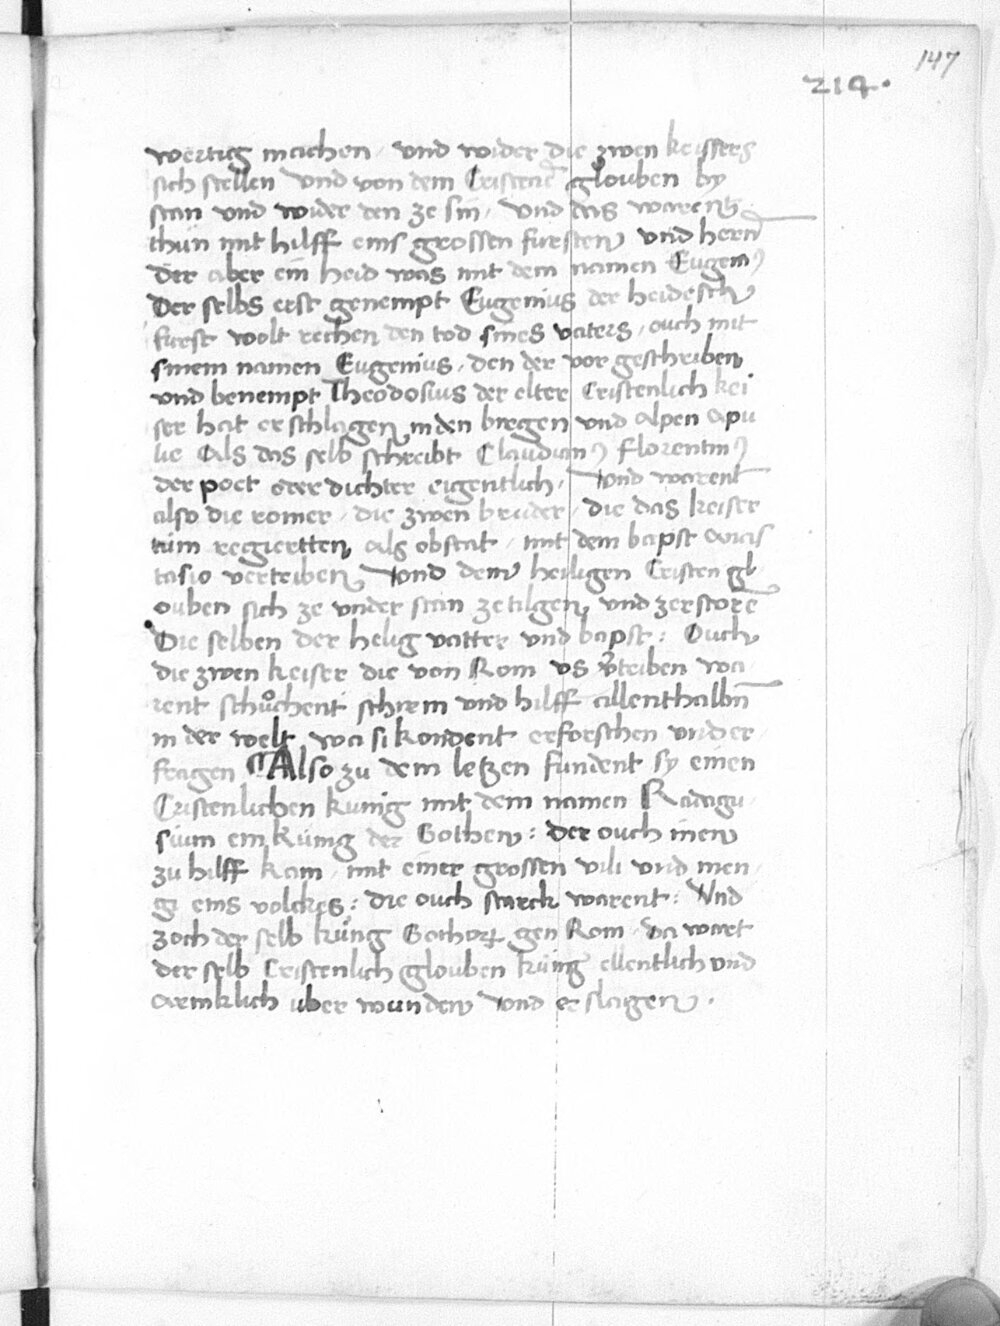 147
214.
wertig machen / vnd wider die zwen keissers
sich stellen Vnd von dem Cristenē glouben by
stan vnd wider den ze sin / Vnd das warens
thŭn mit hilff eins grossen fursten vnd hern
der aber ein heid was mit dem namen Eugeniꝰ
Der selbs erst genempt Eugenius der heidesch
furst wolt rechen den tod sines vaters / ouch mit
sinem namen Eugenius / den der vor geschriben
vnd benempt Theodosius der elter Cristenlich kei
ser hat erschlagen in den bregen vnd alpen apu
lie Als das selb schreibt Claudianꝰ florentinꝰ
der poet oder dichter eigentlich / Vnd warent
also die romer / die zwen bruder / die das keiser
tum regiertten als obstat / mit dem bapst anas
tasio vertriben Vnd dem heiligen Cristen gl
ouben sich ze vnder stan ze tilgen vnd zerstorē
Die selben der helig vatter vnd bapst : Ouch
die zwen keiser die von Rom vs v̄triben wa
rent schůchent schrem vnd hilff allenthalbn̄
in der welt wa si kondent erforschen vnd er
fragen ¶ Also zu dem letzen fundent sy einen
Cristenlichen kunig mit dem namen Radagu
sium ein küing der Gothen : der ouch inen
zu hilff kam / mit einer grossen vili vnd men
gi eins volckes : die ouch starck warent : Vnd
zoch der selb küng Gothoꝝ gen Rom / da wart
der selb Cristenlich glouben küing ellentlich vnd
armklich uber wunden Vnd er slagen .